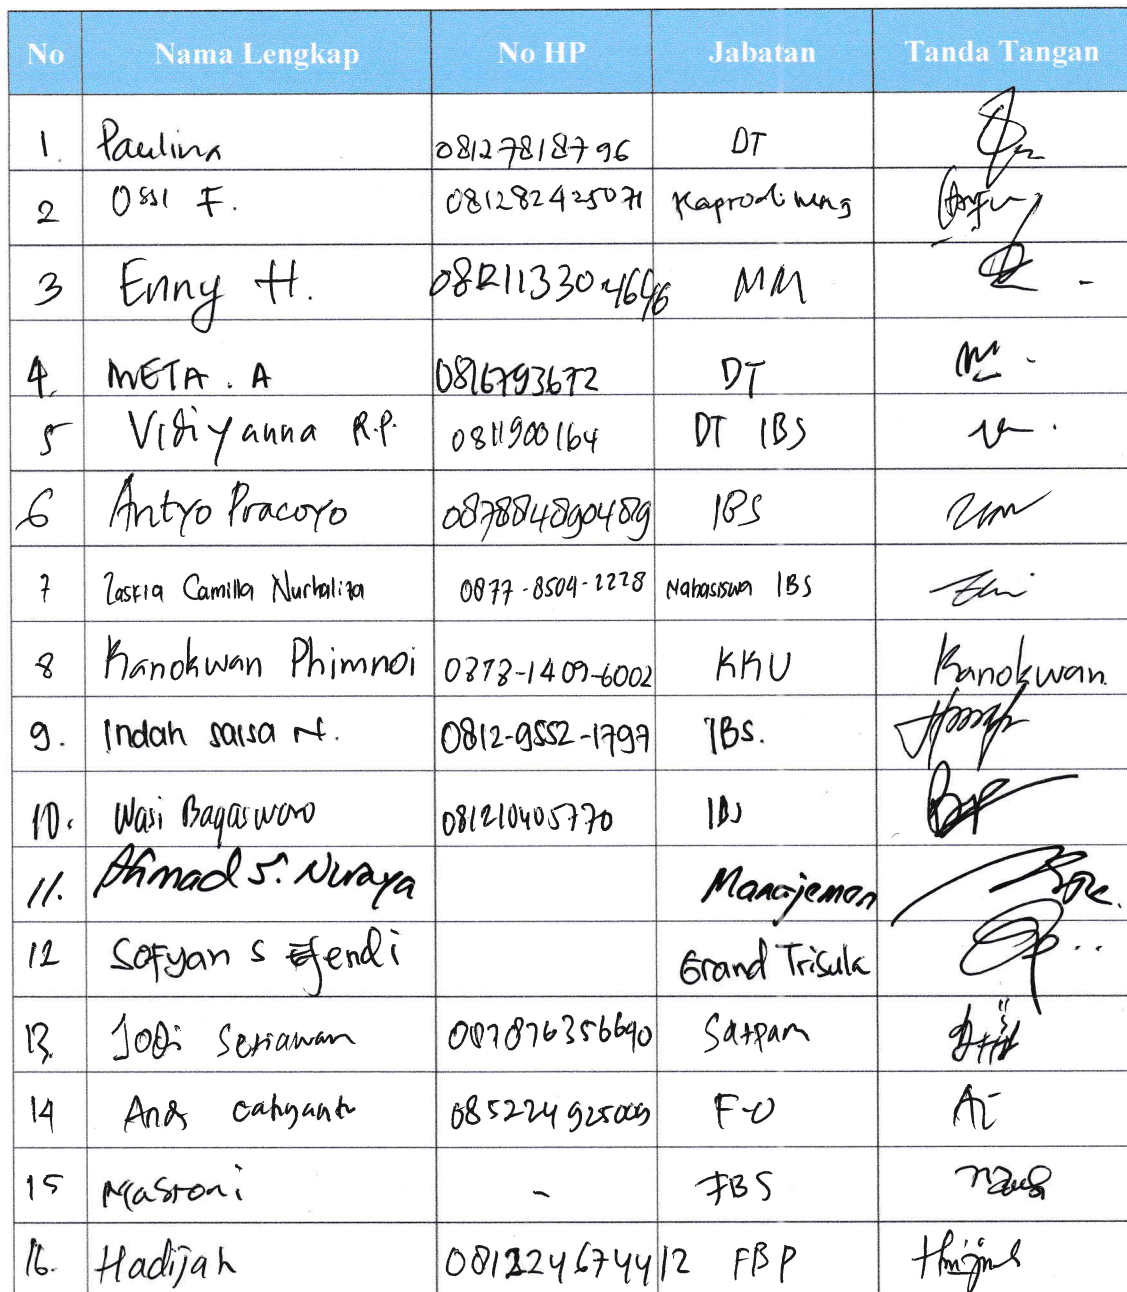 No Nama Lengkap No HP Jabatan Tanda Tangan
1. Paulina 08127818796 DT
2 Ossi F. 081282425071 Kaprodi
3 Enny H. MM
4. META . A 0816793672 DT
5 Vidiyanna R.P. 0811900164 DT IBS
6 Antyo Pracoyo 087884890489 IBS
7 Zaskia Camilla Nurhaliza 0877-8504-2228 Mahasiswa IBS
8 Kanokwan Phimnoi 0878-1409-6002 KKU Kanokwan
9. Indah salsa N. 0812-9552-1797 IBS.
10. Wasi Bagasworo 081210405770 IBS
11. Ahmad S. Nuraya Manajemen
12 Sofyan S Efendi Grand Trisula
13. Jodi Setiawan 087876356690 Satpam
14 F-O
15 Masroni - IBS
16. Hadijah FBP